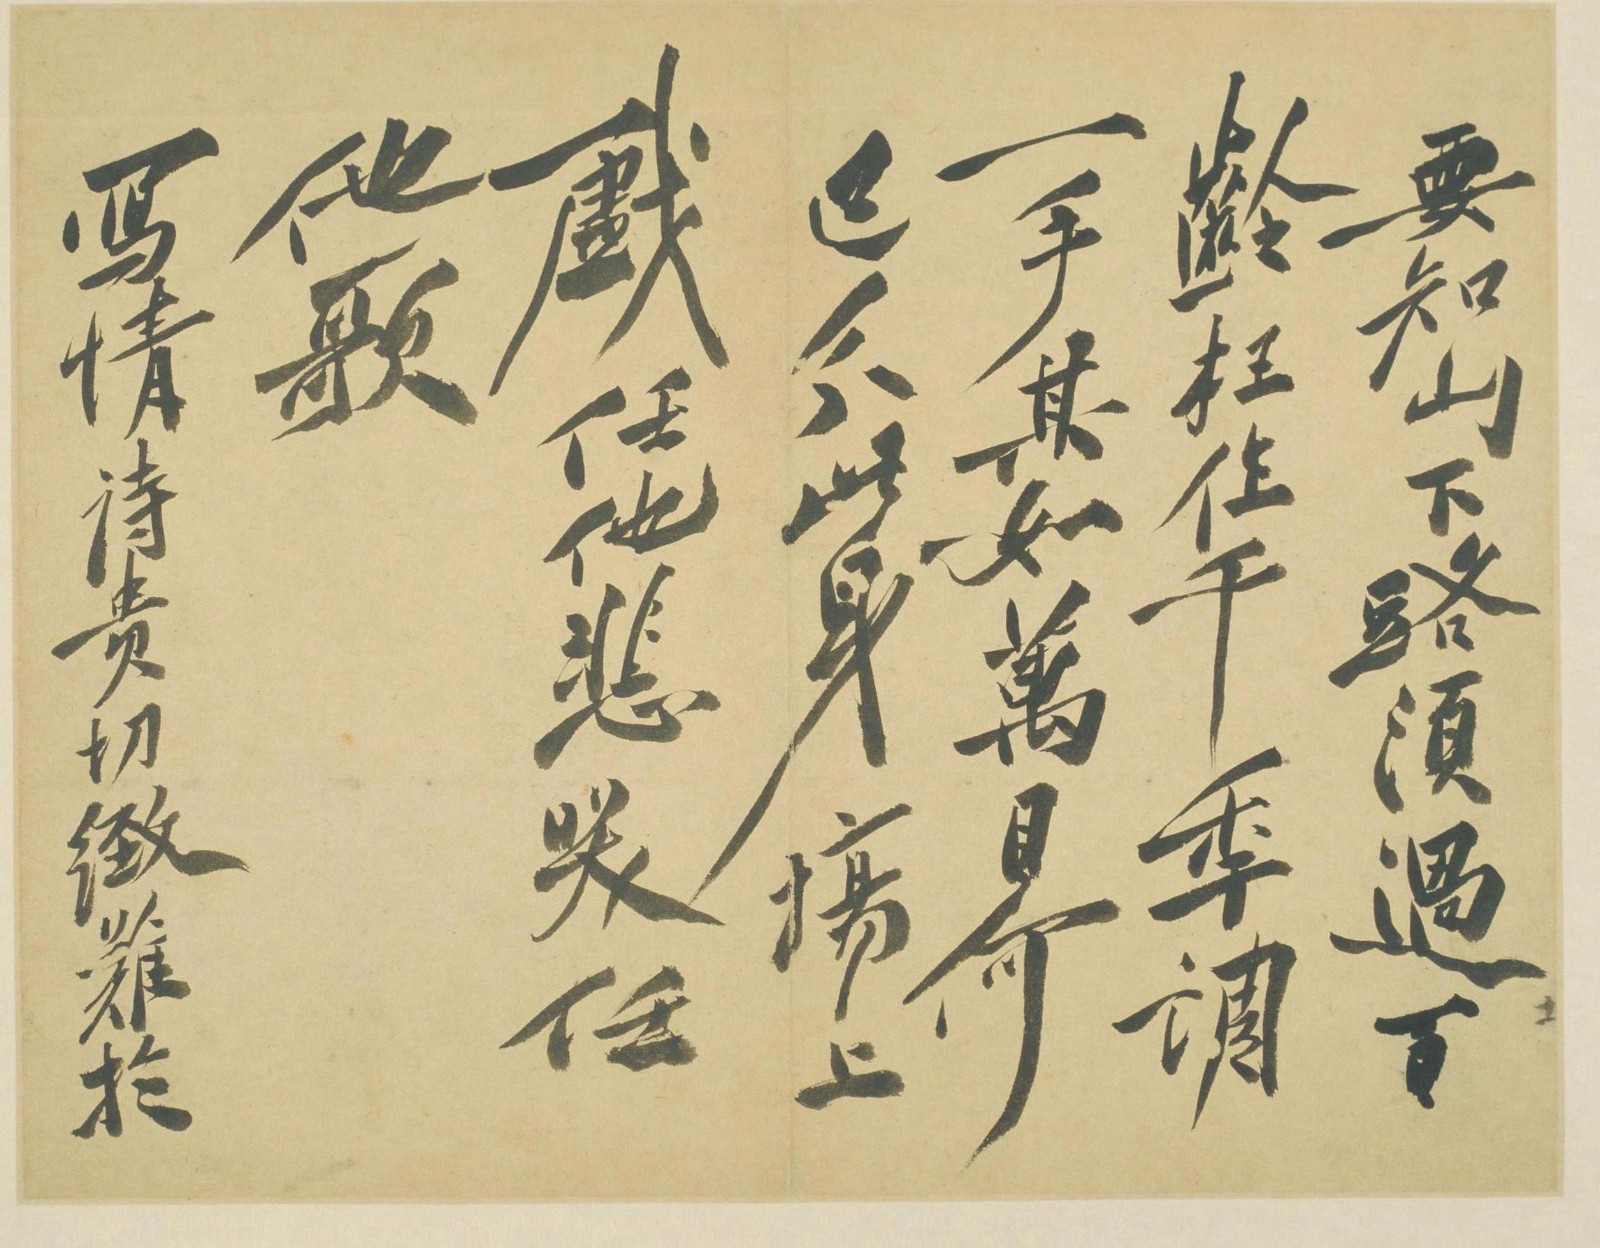 要知山下路須過百
齡枉作千秊調
一手其如萬目何
已分此身場上
戲任他悲咲任
他歌
寫情詩貴切緻難於